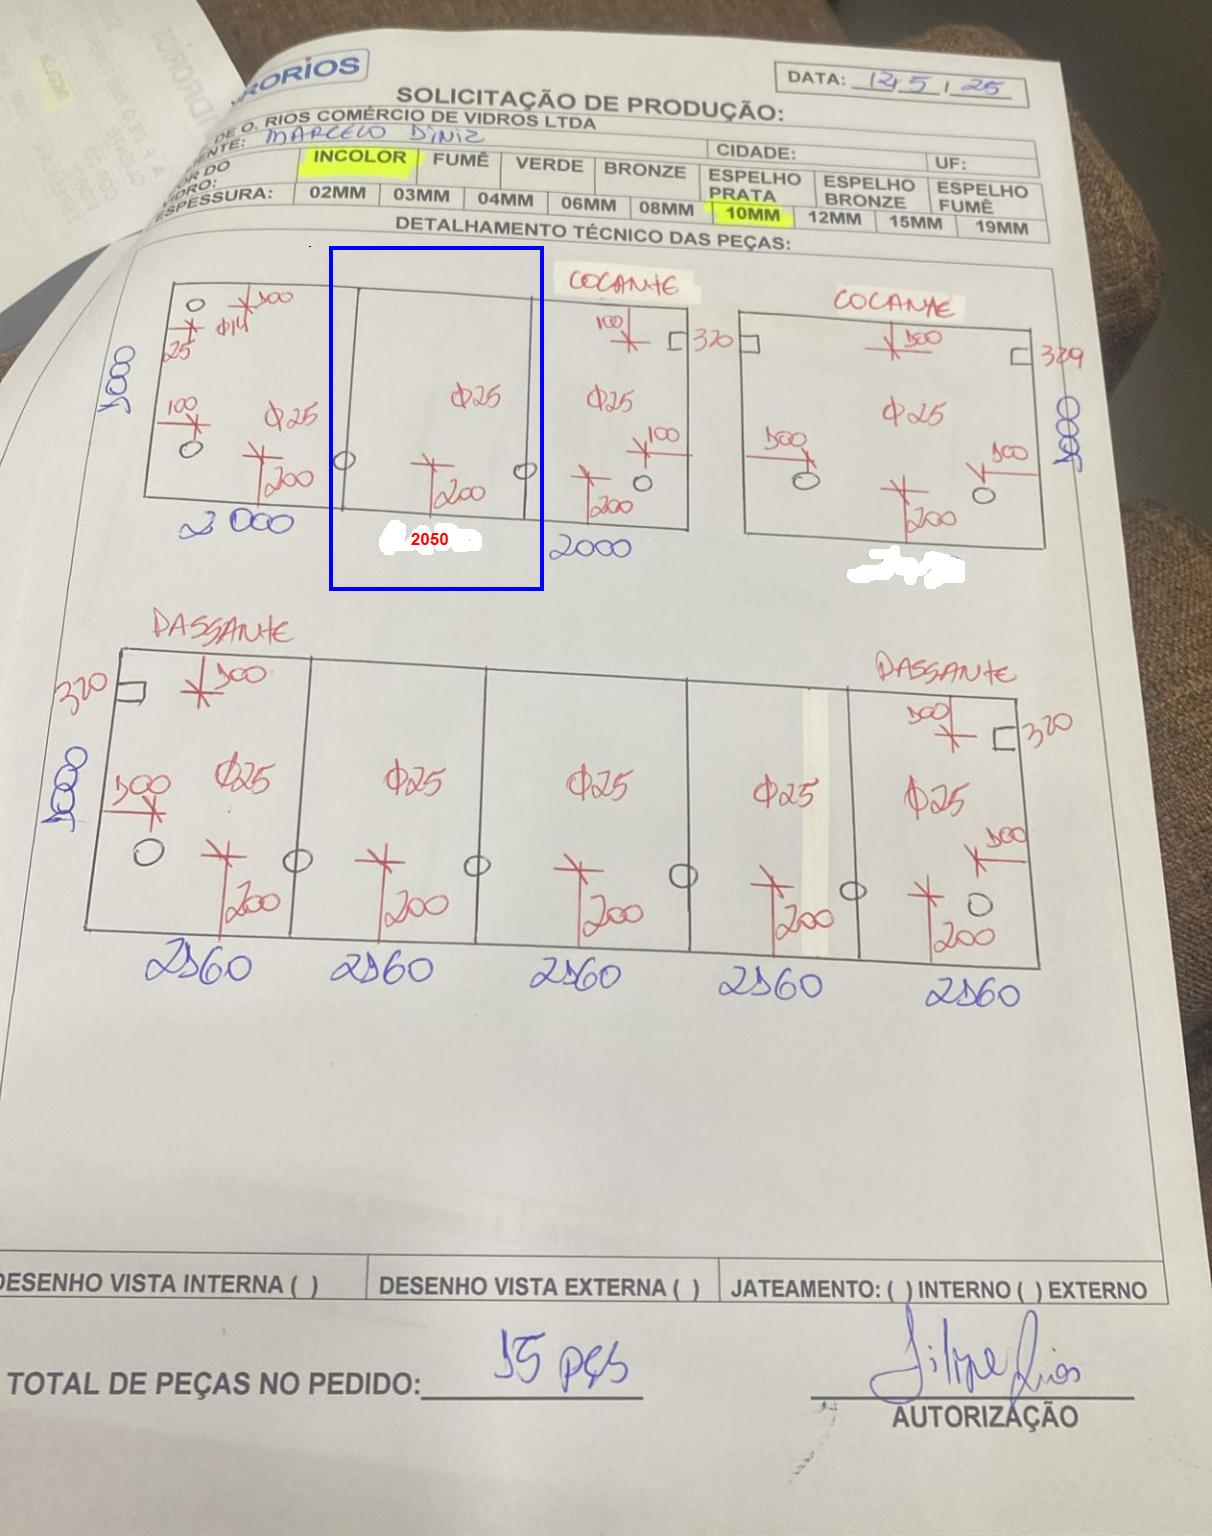 RORIOS
SOLICITAÇÃO DE PRODUÇÃO:
DATA: 12/5/25
DE O. RIOS COMÉRCIO DE VIDROS LTDA
ENTE: MARCELO DINIZ
CIDADE:
UF:
OR DO
DRO:
INCOLOR
FUMÊ
VERDE
BRONZE
ESPELHO PRATA
ESPELHO BRONZE
ESPELHO FUMÊ
ESPESSURA:
02MM
03MM
04MM
06MM
08MM
10MM
12MM
15MM
19MM
DETALHAMENTO TÉCNICO DAS PEÇAS:
COCANTE
COCANTE
100
Φ14
25
100
320
100
320
1000
100
Φ25
Φ25
Φ25
Φ25
1000
100
100
100
200
200
200
200
2000
2050
2000
PASSANTE
PASSANTE
320
100
100
320
1000
100
Φ25
Φ25
Φ25
Φ25
Φ25
100
200
200
200
200
200
2160
2160
2160
2160
2160
DESENHO VISTA INTERNA ( )
DESENHO VISTA EXTERNA ( )
JATEAMENTO: ( ) INTERNO ( ) EXTERNO
TOTAL DE PEÇAS NO PEDIDO: 15 pçs
Filipe Rios
AUTORIZAÇÃO